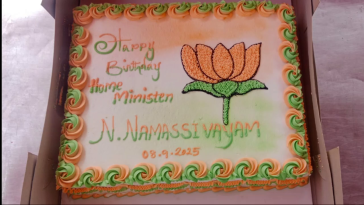 Happy
Birthday
Home
Ministen
N.NAMASSIVAYAM
08.9.2025